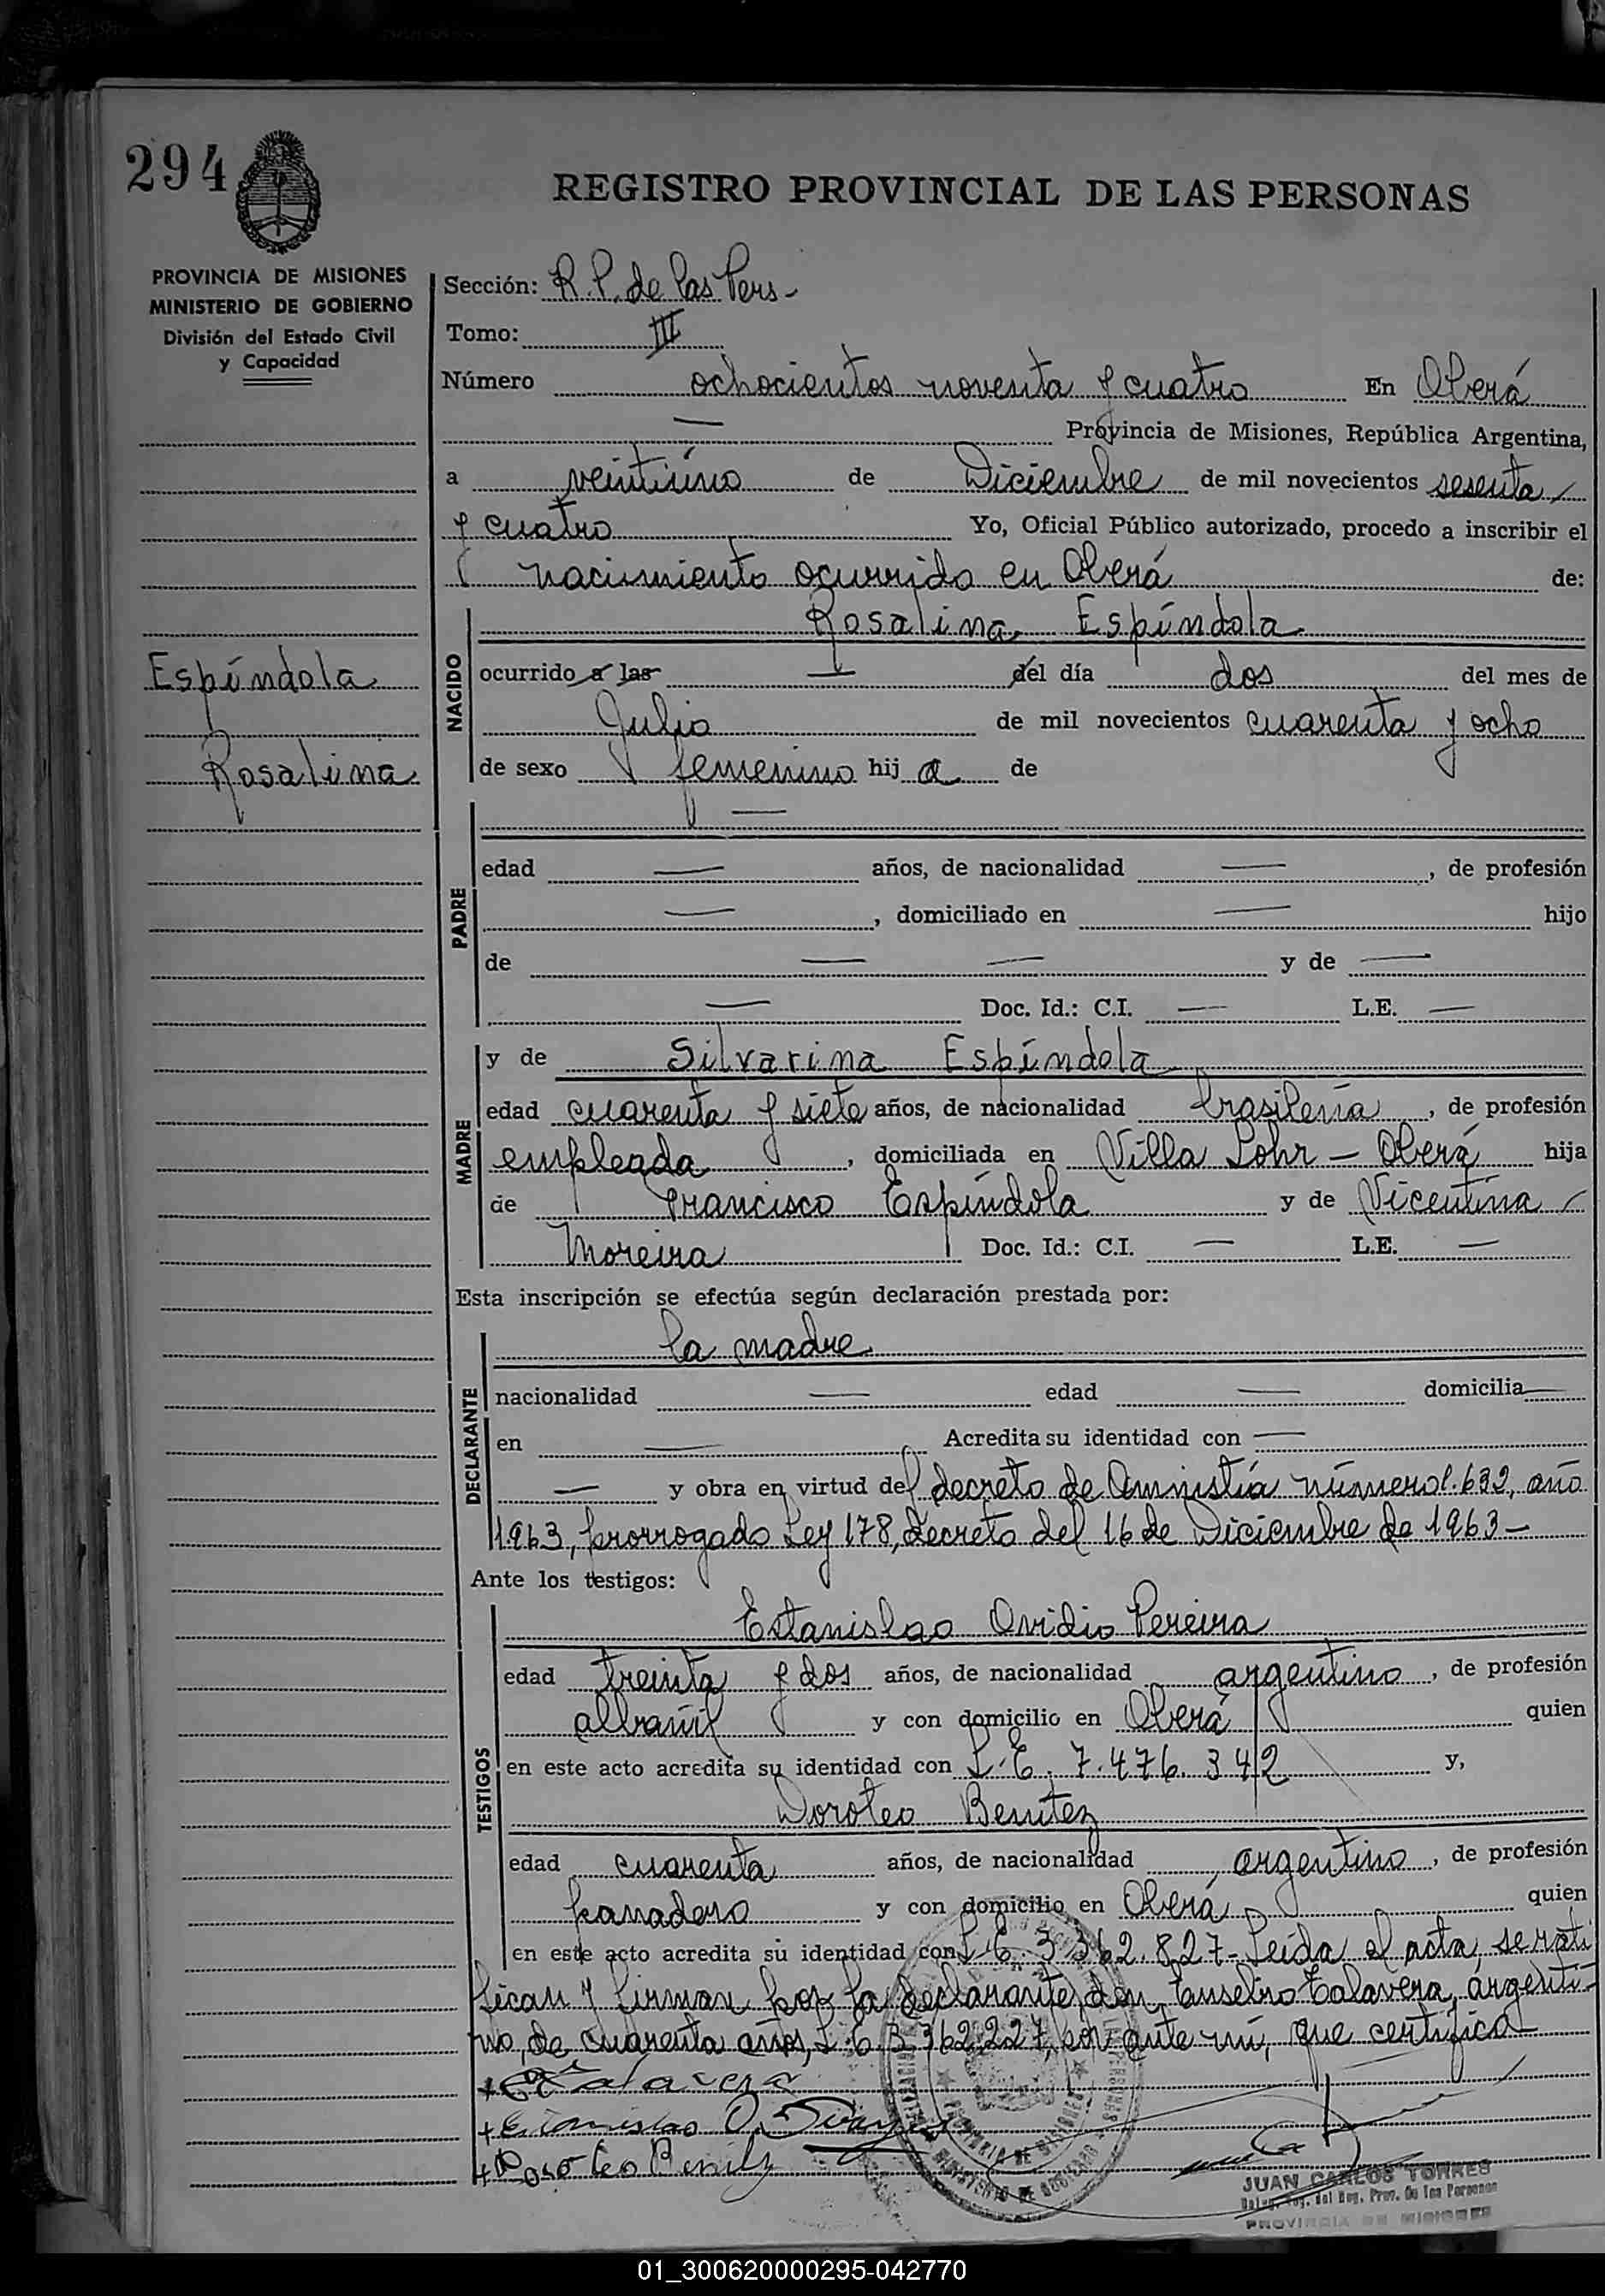 294
REGISTRO PROVINCIAL DE LAS PERSONAS
PROVINCIA DE MISIONES
MINISTERIO DE GOBIERNO
División del Estado Civil
y Capacidad
Sección: R. P. de las Pers-
Tomo: III
Número ochocientos noventa y cuatro En Oberá
— Provincia de Misiones, República Argentina,
a veintiúno de Diciembre de mil novecientos sesenta
y cuatro Yo, Oficial Público autorizado, procedo a inscribir el
nacimiento ocurrido en Oberá de:
Espíndola
Rosalina
NACIDO
Rosalina Espíndola
ocurrido a las — del día dos del mes de
Julio de mil novecientos cuarenta y ocho
de sexo femenino hij a de
PADRE
—
edad — años, de nacionalidad — , de profesión
— , domiciliado en — hijo
de — — y de —
— Doc. Id.: C.I. — L.E. —
MADRE
y de Silvarina Espíndola
edad cuarenta y siete años, de nacionalidad brasileña , de profesión
empleada , domiciliada en Villa Lohr — Oberá hija
de Francisco Espíndola y de Vicentina
Moreira Doc. Id.: C.I. — L.E. —
Esta inscripción se efectúa según declaración prestada por:
DECLARANTE
la madre
nacionalidad — edad — domicilia —
en — Acredita su identidad con —
— y obra en virtud del decreto de Amnistía número 1.632, año
1963, prorrogado Ley 178, decreto del 16 de Diciembre de 1963-
Ante los testigos:
TESTIGOS
Estanislao Ovidio Pereira
edad treinta y dos años, de nacionalidad argentino , de profesión
albañil y con domicilio en Oberá quien
en este acto acredita su identidad con L.E. 7.476.342 y,
Doroteo Benítez
edad cuarenta años, de nacionalidad argentino , de profesión
panadero y con domicilio en Oberá quien
en este acto acredita su identidad con L.E. 3.362.827- Leída el acta, se rati
fican y firman por la declarante, don Anselmo Talavera, argenti-
no, de cuarenta años, L.E. 3.362.227, por ante mí, que certifico
Talavera
Doroteo Benitz
JUAN CARLOS TORRES
PROVINCIA DE MISIONES
01_300620000295-042770